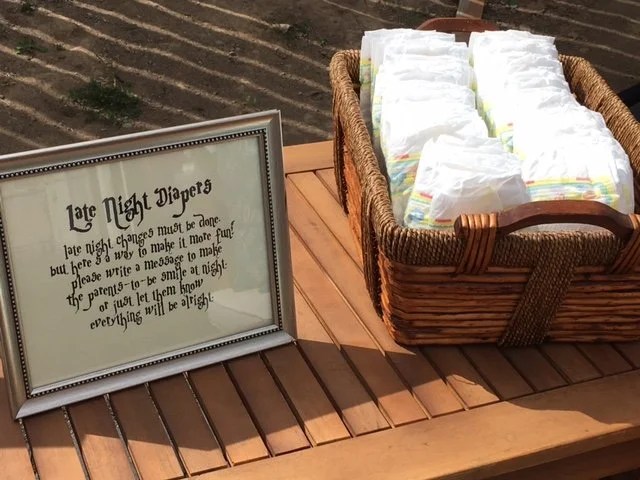 Late Night Diapers
late night changes must be done.
but here's a way to make it more fun!
please write a message to make
the parents-to-be smile at night.
or just let them know
everything will be alright.